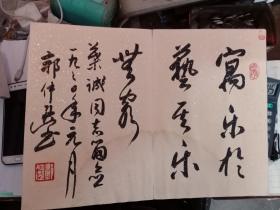 寓乐于
艺其乐
无穷
叶诚同志留念
一九七〇年元月
郭仲选书